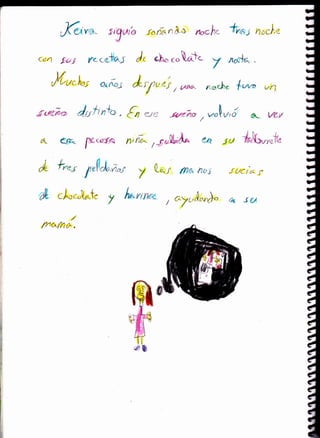 Keira siguió soñando noche tras noche
con sus recetas de chocolate y nata.
Muchos años después, una noche tuvo un
sueño distinto. En ese sueño, volvió a ver
a esa pecosa niña, subida en su taburete
de tres peldaños y las manos sucias
de chocolate y harina, ayudando a su
mamá.